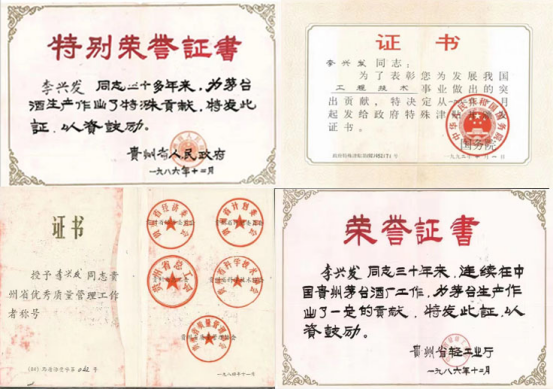 特别荣誉証書
李兴发 同志三十多年来,为茅台
酒生产作出了特殊贡献,特发此
証,以资鼓励。
贵州省人民政府
一九八六年十二月
证书
李兴发同志:
为了表彰您为发展我国
工程技术 事业做出的突
出贡献,特决定从一九
起发给政府特殊津贴
证书。
国务院
证书
授予李兴发同志贵
州省优秀质量管理工作
者称号
贵州省总工会
一九八四年十一
荣誉証書
李兴发 同志三十年来,连续在中
国贵州茅台酒厂工作,为茅台生产作
出了一定的贡献,特发此証,以
资鼓励。
贵州省轻工业厅
一九八六年十二月